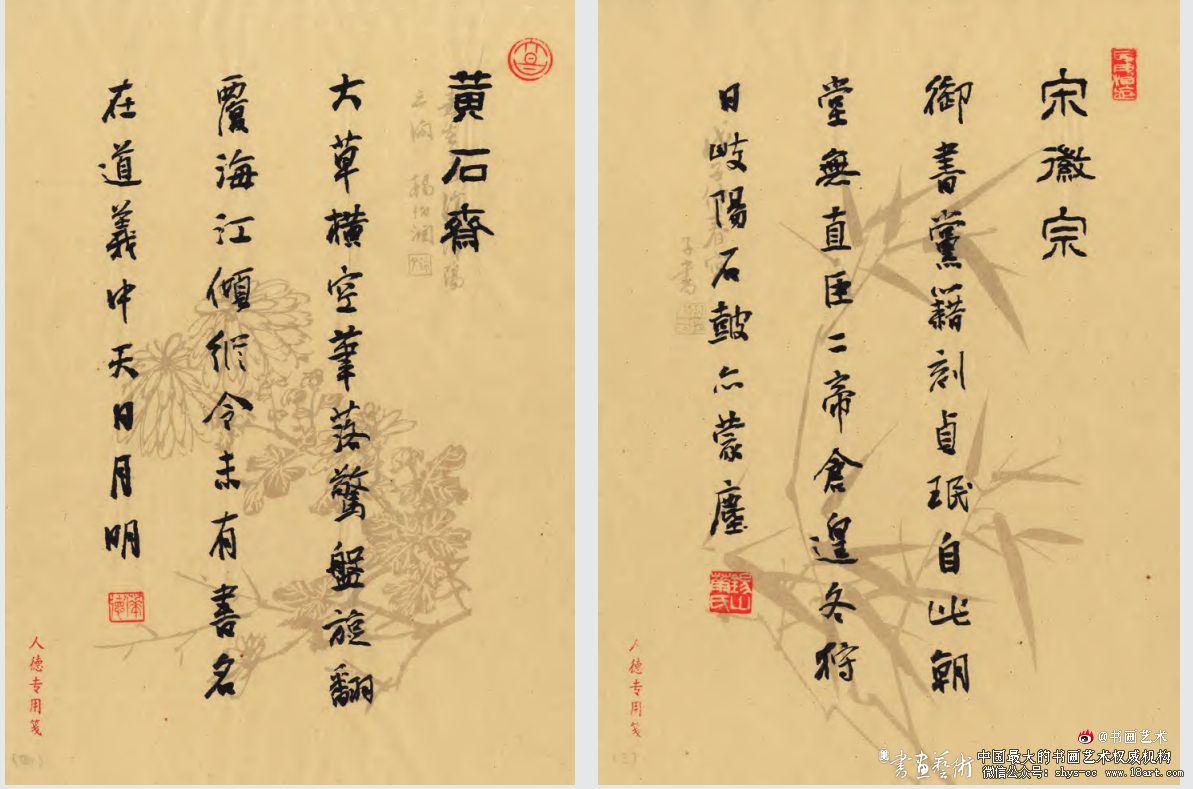 宋徽宗
御書黨籍刻貞珉自此朝
堂無直臣二帝倉遑冬狩
日岐陽石鼓亦蒙塵
人德专用笺
(三)
黄石齋
大草橫空筆落驚盤旋翻
覆海江傾縱令未有書名
在道義中天日月明
人德专用笺
(四)
@书画艺术
書畫藝術
中国最大的书画艺术权威机构
微信公众号: shys-cc www.18art.com